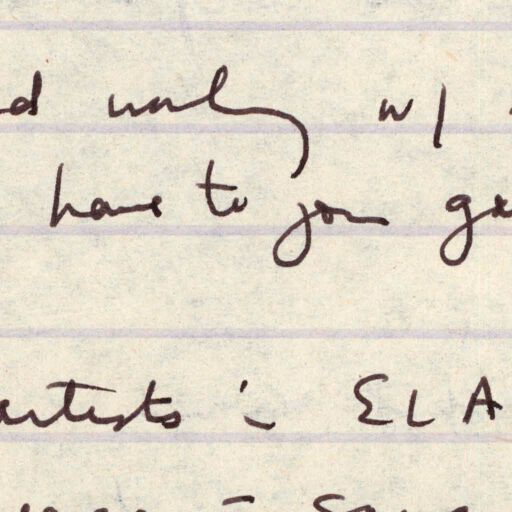 d working w/
have to join ga
artists in ELA